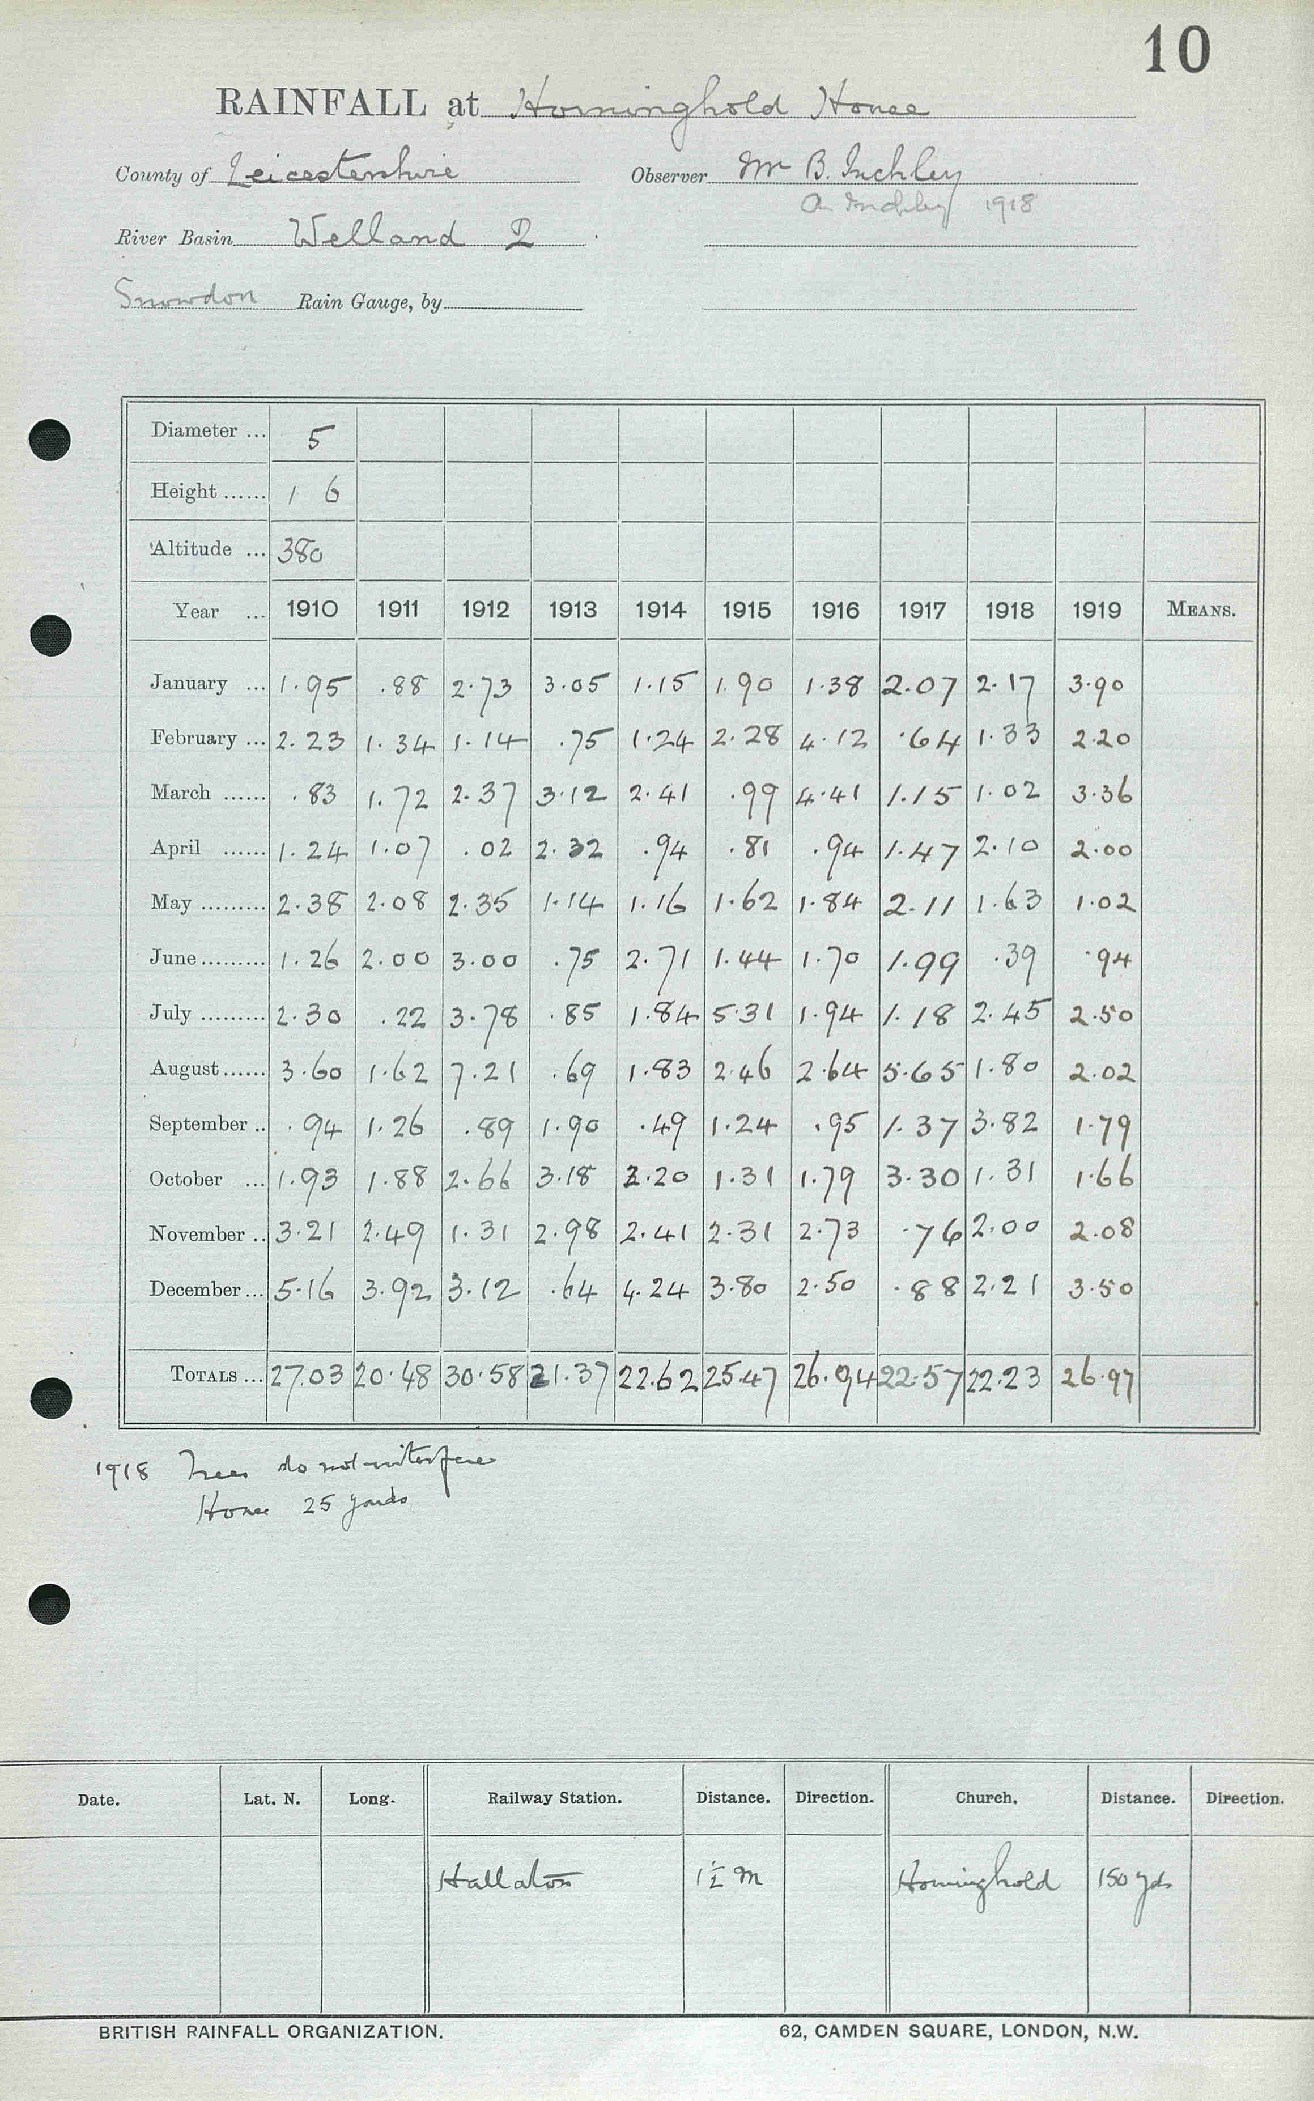 10
RAINFALL at Horninghold House
County of Leicestershire Observer Mr B. Inchley
A Inchley 1918
River Basin Welland 2
Snowdon Rain Gauge, by
Diameter ... 5
Height ...... 1 6
Altitude ... 380
Year ... 1910 1911 1912 1913 1914 1915 1916 1917 1918 1919 MEANS.
January ... 1.95 .88 2.73 3.05 1.15 1.90 1.38 2.07 2.17 3.90
February ... 2.23 1.34 1.14 .75 1.24 2.28 4.12 .64 1.33 2.20
March ...... .83 1.72 2.37 3.12 2.41 .99 4.41 1.15 1.02 3.36
April ...... 1.24 1.07 .02 2.32 .94 .81 .94 1.47 2.10 2.00
May ......... 2.38 2.08 2.35 1.14 1.16 1.62 1.84 2.11 1.63 1.02
June ......... 1.26 2.00 3.00 .75 2.71 1.44 1.70 1.99 .39 .94
July ......... 2.30 .22 3.78 .85 1.84 5.31 1.94 1.18 2.45 2.50
August ...... 3.60 1.62 7.21 .69 1.83 2.46 2.64 5.65 1.80 2.02
September .. .94 1.26 .89 1.90 .49 1.24 .95 1.37 3.82 1.79
October ... 1.93 1.88 2.66 3.18 2.20 1.31 1.79 3.30 1.31 1.66
November .. 3.21 2.49 1.31 2.98 2.41 2.31 2.73 .76 2.00 2.08
December ... 5.16 3.92 3.12 .64 4.24 3.80 2.50 .88 2.21 3.50
TOTALS ... 27.03 20.48 30.58 21.37 22.62 25.47 26.94 22.57 22.23 26.97
1918 Trees do not interfere
House 25 yards
Date. Lat. N. Long. Railway Station. Distance. Direction. Church. Distance. Direction.
Hallaton 1½ m Horninghold 150 yds
BRITISH RAINFALL ORGANIZATION. 62, CAMDEN SQUARE, LONDON, N.W.